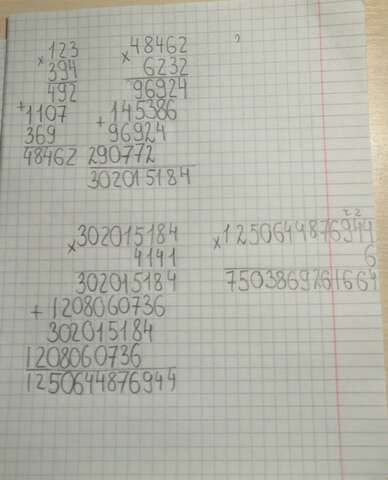 123
× 394
492
+ 1107
369
48462
48462
× 6232
96924
+ 145386
96924
290772
302015184
302015184
× 4141
302015184
+ 1208060736
302015184
1208060736
1250644876944
2 2
× 1250644876944
6
7503869261664